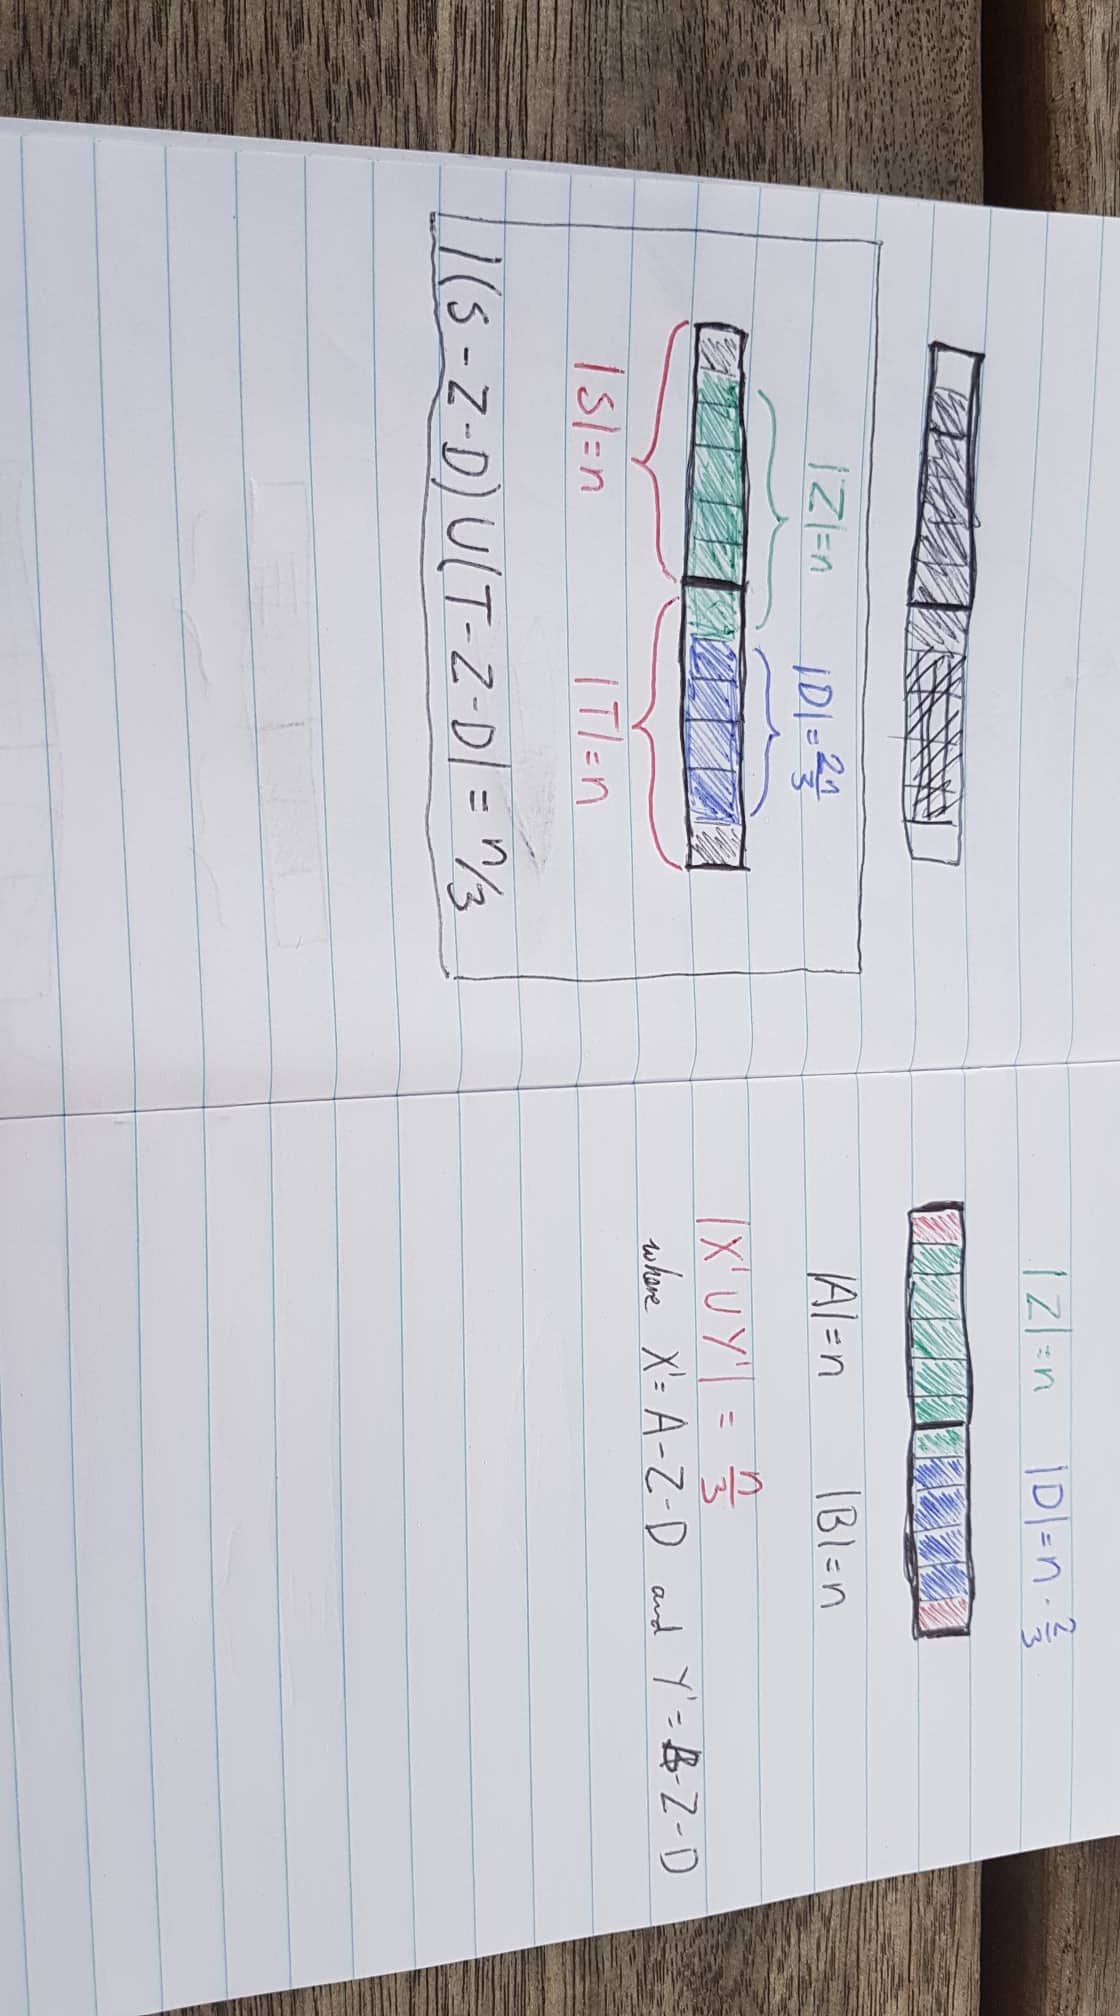 |Z|=n |D|=2n/3
|S|=n |T|=n
|(S-Z-D)∪(T-Z-D| = n/3
|Z|=n |D|=n·2/3
|A|=n |B|=n
|X'∪Y'| = n/3
where X'=A-Z-D and Y'=B-Z-D